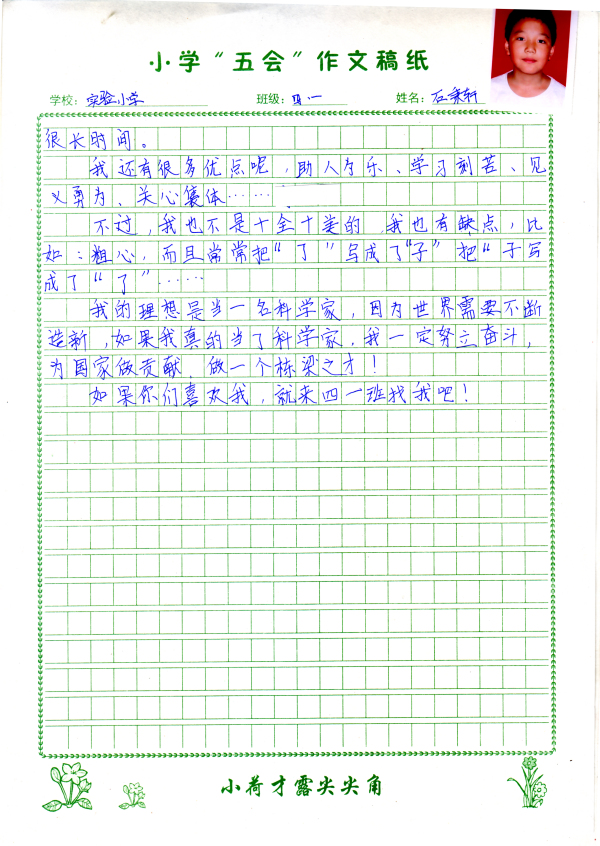 小学“五会”作文稿纸
学校：实验小学 班级：四.一 姓名：石秉轩
很长时间。
我还有很多优点呢，助人为乐、学习刻苦、见
义勇为、关心集体……
不过，我也不是十全十美的，我也有缺点，比
如：粗心，而且常常把“了”写成了“子”把“子写
成了“了”……
我的理想是当一名科学家，因为世界需要不断
造新，如果我真的当了科学家，我一定努立奋斗，
为国家做贡献，做一个栋梁之才！
如果你们喜欢我，就来四一班找我吧！
小荷才露尖尖角